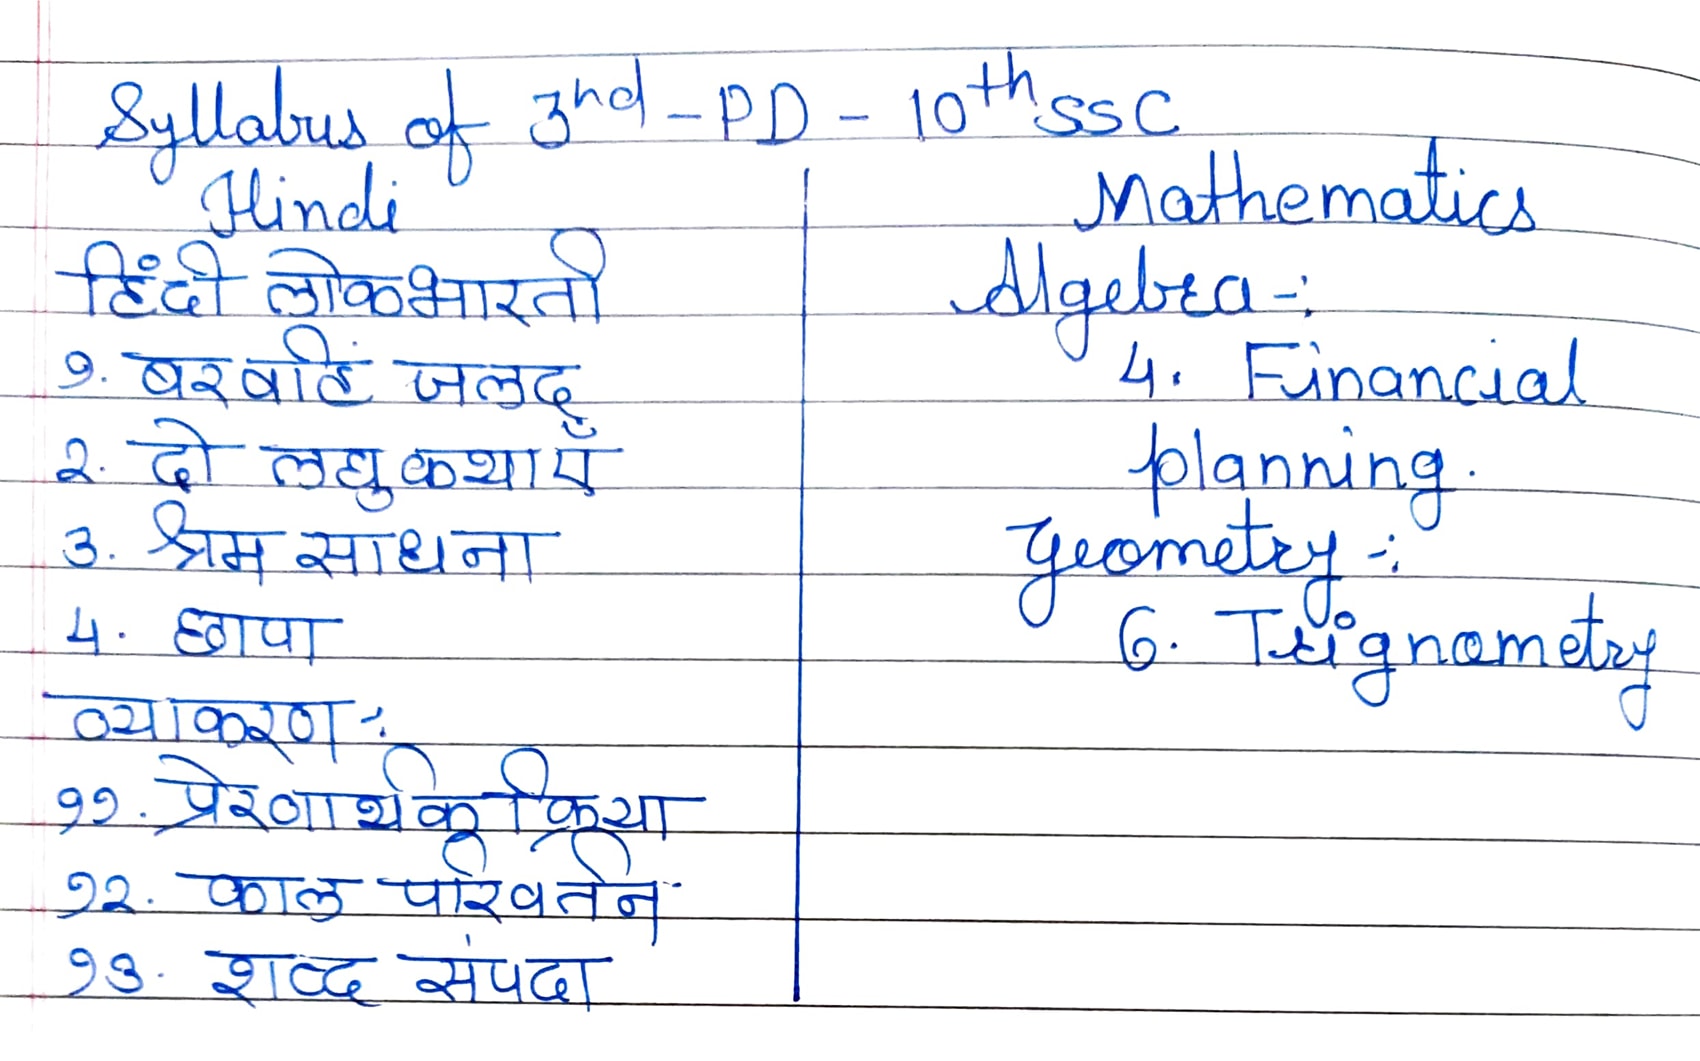 Syllabus of 3nd - PD - 10th SSC
Hindi
हिंदी लोकभारती
१. बरषहिं जलद
२. दो लघुकथाएँ
३. श्रम साधना
4. छापा
व्याकरण -:
११. प्रेरणार्थक क्रिया
१२. काल परिवर्तन
१३. शब्द संपदा
Mathematics
Algebra -:
4. Financial
planning.
Geometry -:
6. Trignometry